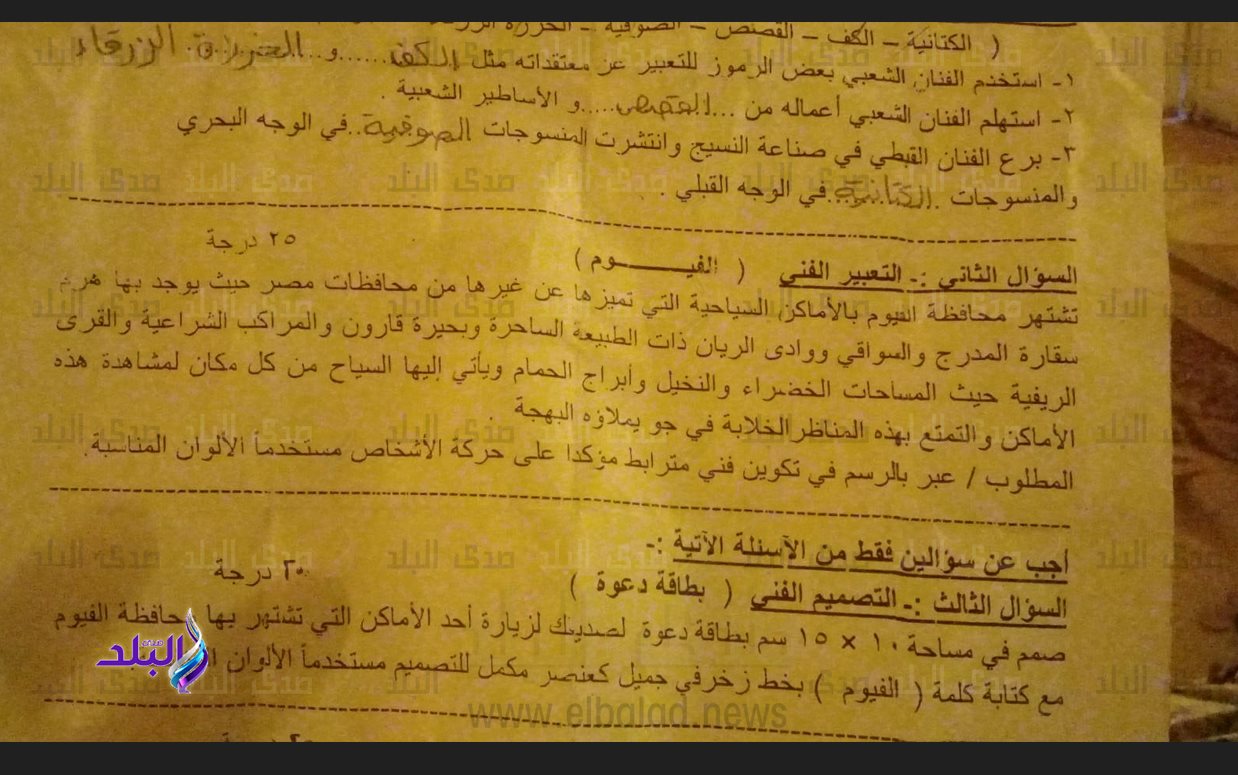 ( الكتانية – الكف – القصص – الصوفية – الخرزة الزرقاء
١- استخدم الفنان الشعبي بعض الرموز للتعبير عن معتقداته مثل الكف......و...الخرزة الزرقاء
٢- استهلم الفنان الشعبي أعماله من ...القصص.....و الأساطير الشعبية .
٣- برع الفنان القبطي في صناعة النسيج وانتشرت المنسوجات الصوفية..في الوجه البحري
والمنسوجات .الكتانية.في الوجه القبلي .
٢٥ درجة
السؤال الثاني :- التعبير الفني ( الفيـــــوم )
تشتهر محافظة الفيوم بالأماكن السياحية التي تميزها عن غيرها من محافظات مصر حيث يوجد بها هرم
سقارة المدرج والسواقي ووادى الريان ذات الطبيعة الساحرة وبحيرة قارون والمراكب الشراعية والقرى
الريفية حيث المساحات الخضراء والنخيل وأبراج الحمام ويأتي إليها السياح من كل مكان لمشاهدة هذه
الأماكن والتمتع بهذه المناظرالخلابة في جو يملاؤه البهجة .
المطلوب / عبر بالرسم في تكوين فني مترابط مؤكدا على حركة الأشخاص مستخدماً الألوان المناسبة.
أجب عن سؤالين فقط من الآسئلة الآتية :-
٢٠ درجة
السؤال الثالث :- التصميم الفني ( بطاقة دعوة )
صمم في مساحة ١٠ × ١٥ سم بطاقة دعوة لصديقك لزيارة أحد الأماكن التي تشتهر بها محافظة الفيوم
مع كتابة كلمة ( الفيوم ) بخط زخرفي جميل كعنصر مكمل للتصميم مستخدماً الألوان
صدى البلد
www.elbalad.news